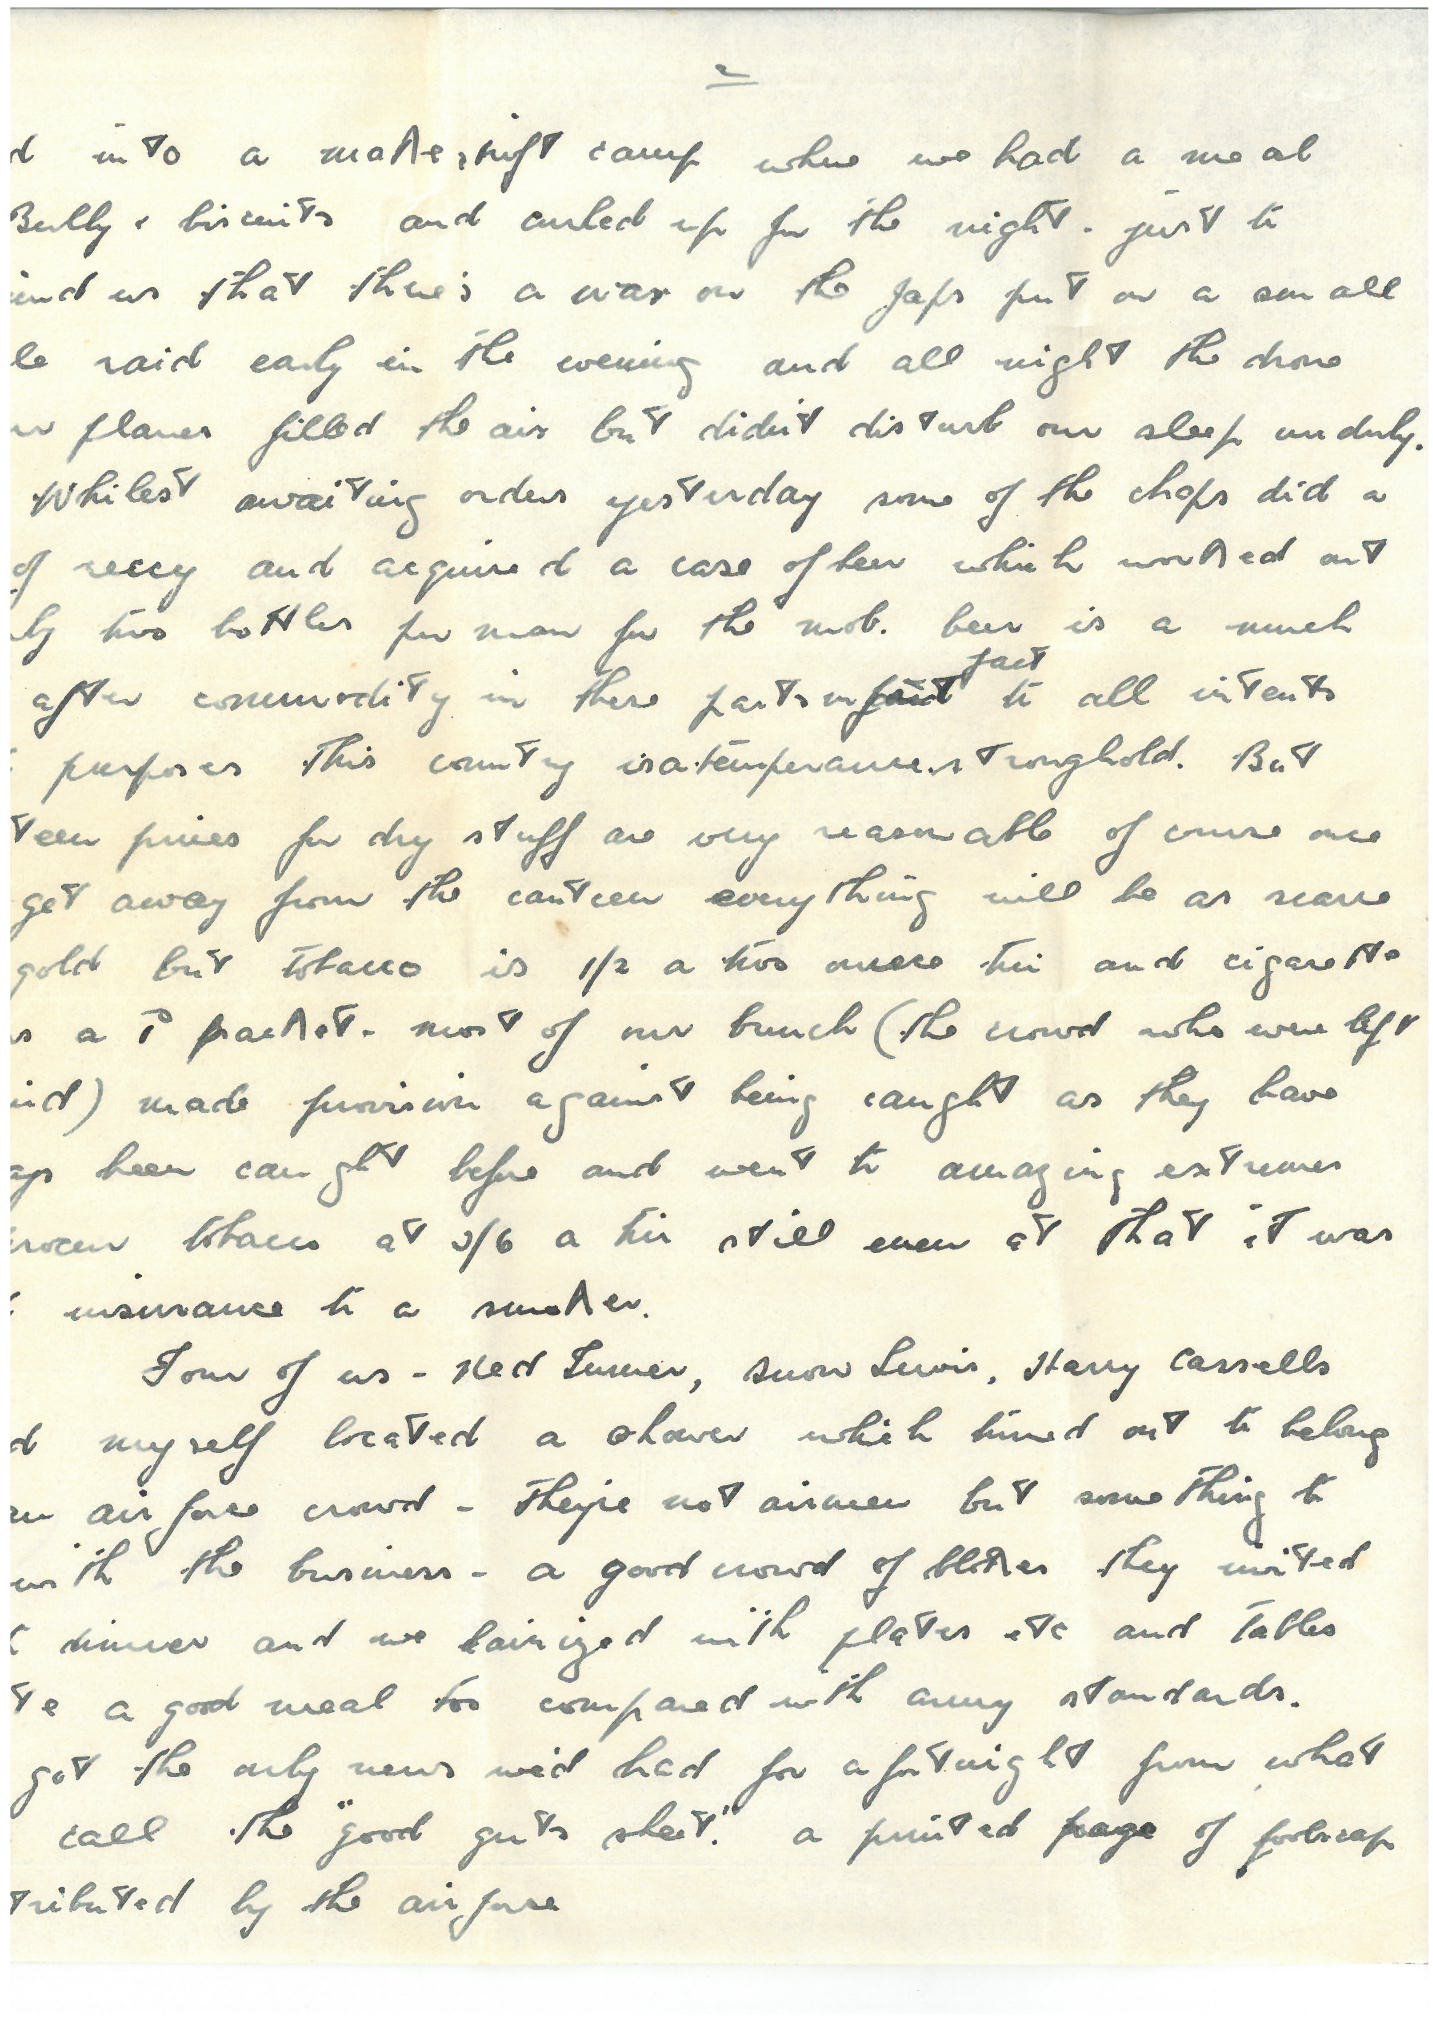 2
d into a makeshift camp where we had a meal
Bully & biscuits and curled up for the night. just to
ind us that there's a war on the Japs put on a small
le raid early in the evening and all night the drone
ur planes filled the air but didn't disturb our sleep unduly.
Whilest awaiting orders yesterday some of the chaps did a
of reccy and acquired a case of beer which worked out
ly two bottles per man for the mob. beer is a much
after commodity in these parts in fact to all intents
purposes this country is a temperance stronghold. But
teen prices for dry stuff are very reasonable of course once
get away from the canteen everything will be as scarce
gold but tobacco is 1/2 a two ounce tin and cigarette
s a 1d packet. most of our bunch (the crowd who were left
ind) made provision against being caught as they have
ays been caught before and went to amazing extremes
tobacco at 2/6 a tin still even at that it was
insurance to a smoker.
Four of us - Ned Turner, Snow Lewis, Harry Cassells
d myself located a shower which turned out to belong
an air force crowd - they're not airmen but something to
with the business - a good crowd of blokes they invited
t dinner and we lairized with plates etc and tables
te a good meal too compared with army standards.
got the only news we'd had for a fortnight from what
call the "good guts sheet." a printed page of foolscap
tributed by the air force